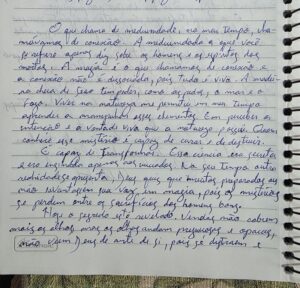 O que chamo de mediunidade, no meu tempo, cha-
mávamos de conexão. A mediunidade a que você
se refere apenas diz sobre os homens e os espíritos dos
mortos. A magia é o que chamamos de conexão e
a conexão não é dissociada, pois tudo é vivo. A medi-
cheia de seus templos, como as pedras, o mar e o
fogo. Viver na natureza me permitiu em meu tempo
aprender a manipular esses elementos. Em perceber a
intenção e a vontade viva que a natureza possui. Quem
conhece esse mistério é capaz de curar e de destruir.
É capaz de transformar. Essa ciência era secreta
e era ensinada apenas aos iniciados. Em seu tempo outra
realidade se apresenta, e muitos preparados ou
não levantam sua voz em magia, pois os mistérios
se perdem entre os sacrifícios dos homens bons.
Hoje o segredo está revelado. Vendas não cobrem
mais os olhos, mas os olhos andam preguiçosos e apesar,
não veem de ante de si, pois se distraem e